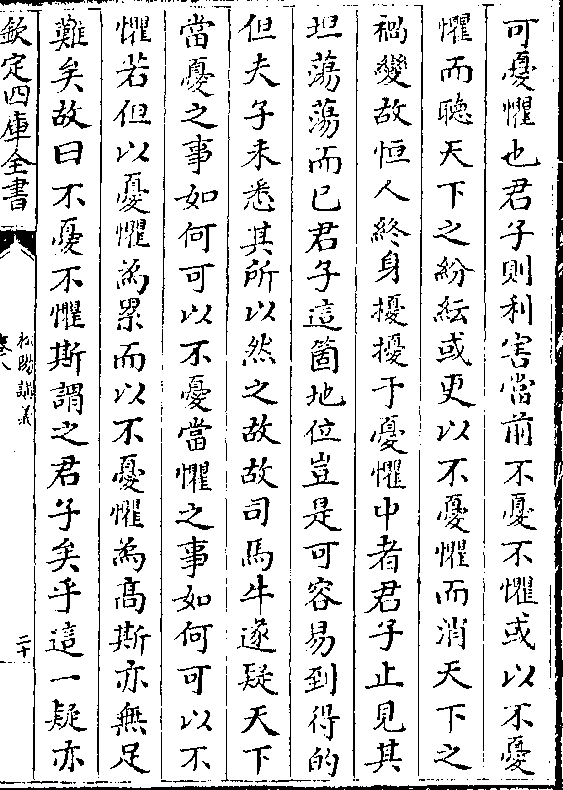 可憂懼也君子則利害當前不憂不懼或以不憂
懼而聽天下之紛紜或更以不憂懼而消天下之
禍變故恒人終身擾擾于憂懼中者君子止見其
坦蕩蕩而已君子這箇地位豈是可容易到得的
但夫子未悉其所以然之故故司馬牛遂疑天下
當憂之事如何可以不憂當懼之事如何可以不
懼若但以憂懼為累而以不憂懼為髙斯亦無足
難矣故曰不憂不懼斯謂之君子矣乎這一疑亦
欽定四庫全書
松陽講義
卷八
二十